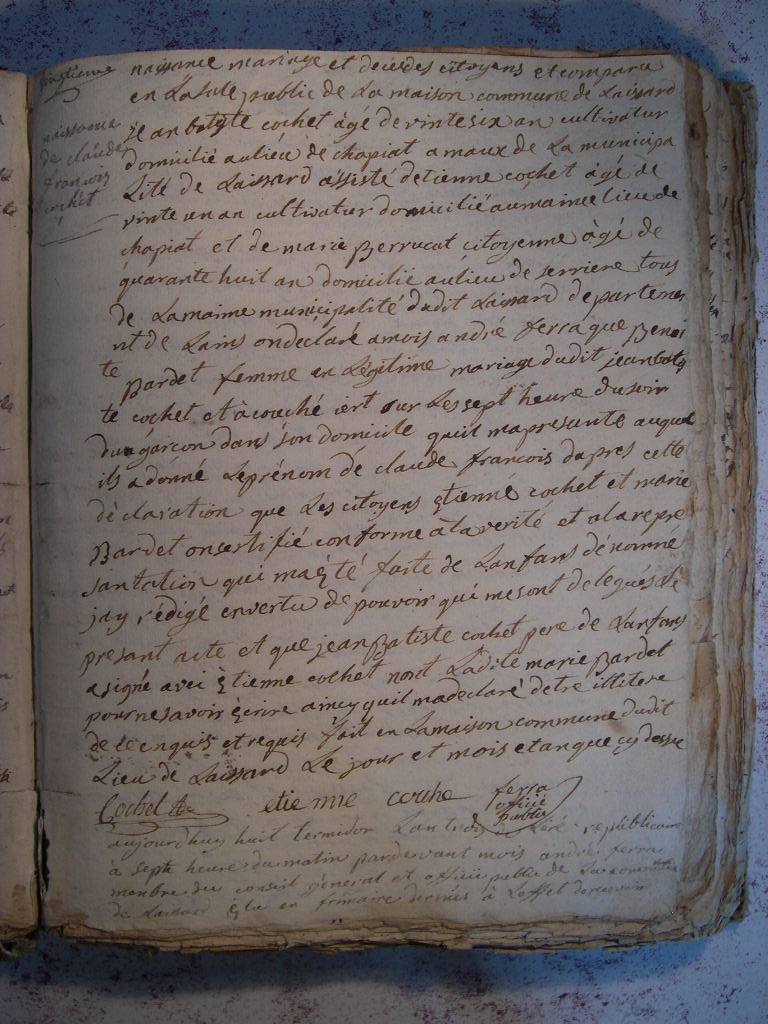 vingtieme
naissance
de claude
francois
cochet
naissance mariage et deces des citoyens et comparu
en La sale public de La maison commune de Laissard
jean batyte cochet âgé de vinte six an cultivatur
domicilié au lieu de chapiat a maux de La municipa
Lité de Laissard assisté detienne cochet âgé de
vinte un an cultivatur domicilié au maime lieu de
chapiat et de marie Perrucat citoyenne âgé de
quarante huit an domicilié au lieu de serriere tous
de La maime municipalité dudit Laissard departeme
nt de Lains on déclaré a mois andré ferra que Benoi
te Bardet femme en Légitime mariage dudit jean batis
te cochet et àcouché iert sur Les sept heure du soir
dun garcon dans son domicile quil ma presante auquel
ils a donné Le prénom de claude francois dapres cette
déclaration que Les citoyens Etienne cochet et marie
Bardet on certifié conforme à la verité et a la repre
santation qui ma été faite de Lanfans dénommé
jay rédigé en vertu de pouvoir qui me sont delegués Le
presant acte et que jean Batiste cochet pere de Lanfans
a signé avec Etienne cochet nont Ladite marie Bardet
pour ne savoir Ecrire aincy quil ma declaré detre illitere
de ce enquis et requis fait en La maison commune dudit
Lieu de Laissard Le jour et mois et an que cy dessu
Cochet etienne coche ferra
officié
public
aujourdhuy huit termidor Lan trois Lere republicaine
à septe heure du matin pardevant mois andré ferra
menbre du conseil géneral et officié public de La commune
de Laissard Elu en frimaire dernies à Leffet de recevoir